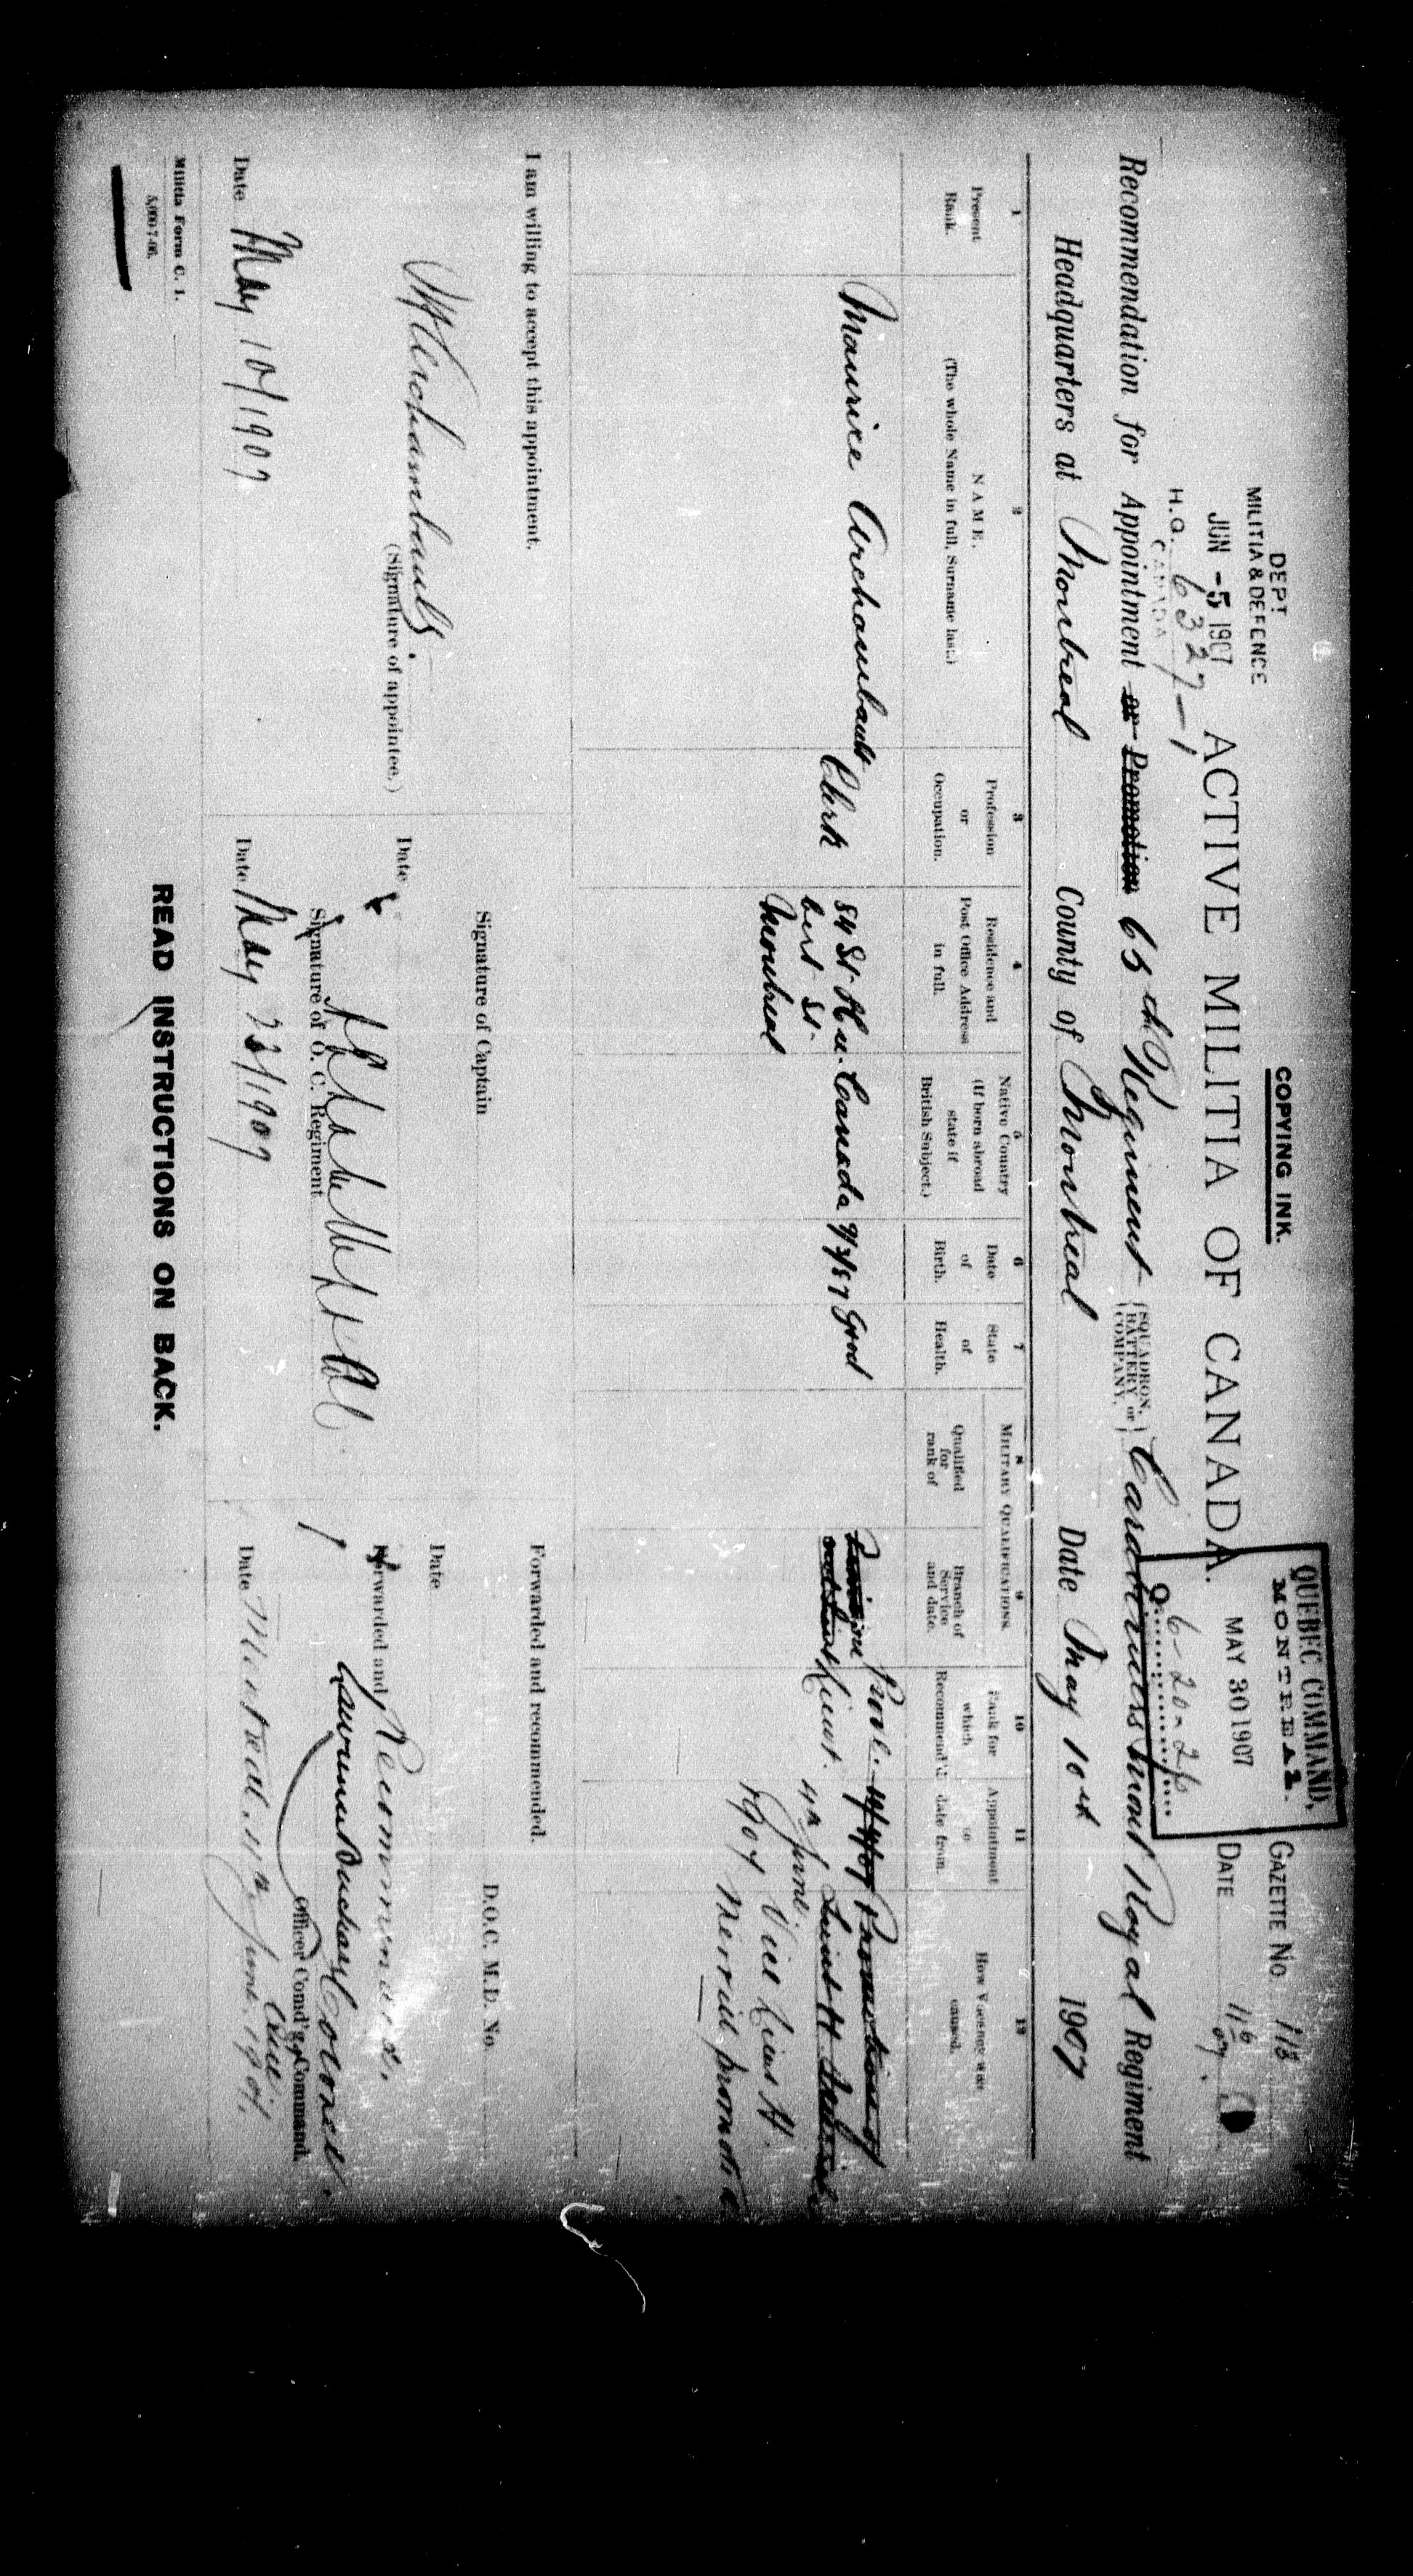 COPYING INK.
QUEBEC COMMAND,
MONTREAL.
MAY 30 1907
6-20-26
GAZETTE No. 118
DATE 11/6/07.
DEPT
MILITIA & DEFENCE
JUN -5 1907
H.Q. 6327-1
CANADA
ACTIVE MILITIA OF CANADA.
Recommendation for Appointment or Promotion 65th Regiment (SQUADRON, BATTERY, or COMPANY.) Carabiniers Mont Royal Regiment
Headquarters at Montreal County of Montreal Date May 10th 1907
1 Present Rank.
2 NAME. (The whole Name in full, Surname last.)
3 Profession or Occupation.
4 Residence and Post Office Address in full.
5 Native Country (If born abroad state if British Subject.)
6 Date of Birth.
7 State of Health.
MILITARY QUALIFICATIONS.
8 Qualified for rank of
9 Branch of Service and date.
10 Rank for which Recommend'd.
11 Appointment to date from.
12 How Vacancy was caused.
Maurice Archambault
Clerk
84 St Hu-
bert St.
Montreal
Canada
Good
Prov.
Lieut.
4th June
1907
Promotion of
Lieut H.
Vice Lieut H.
Merrill promoted
I am willing to accept this appointment.
M Archambault
(Signature of appointee.)
Date May 10/1907
Signature of Captain
Date
Signature of O. C. Regiment
Date May 23/1907
Forwarded and recommended.
D.O.C. M.D. No.
Date
Forwarded and Recommended.
Lawrence Buchan Colonel.
Officer Comd'g Command.
Date Montreal. June 1907.
Militia Form C. 1.
5,000-7-06.
READ INSTRUCTIONS ON BACK.